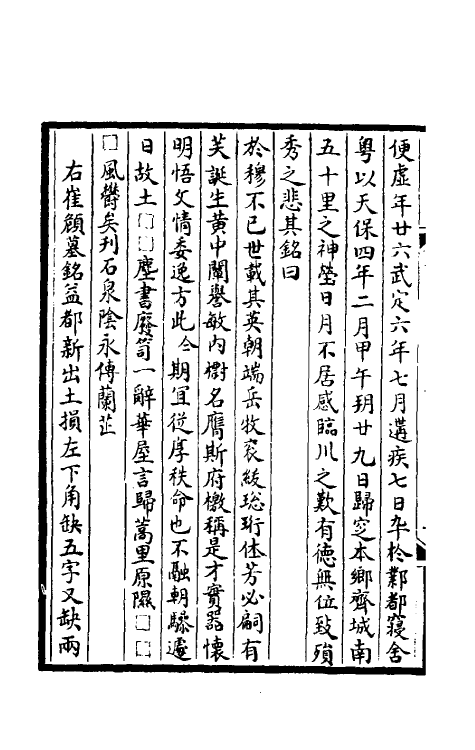 便虛年廿六武定六年七月遘疾七日卒於鄴都寢舍
粵以天保四年二月甲午玥廿九日歸窆本鄉齊城南
五十里之神塋日月不居感臨川之歎有德無位致殞
秀之悲其銘曰
於穆不已世載其英朝端岳牧袞紱璁珩体芳必嗣有
芙誕生黃中闡譽敏內樹名膺斯府檄稱是才實器懷
明悟文情委逸方此今期宜從厚秩命也不融朝驂遽
日故土□□塵書廢笥一辭華屋言歸蒿里原隰□□
□風欝矣刋石泉陰永傳蘭茝
右崔頠墓銘益都新出土損左下角缺五字又缺兩